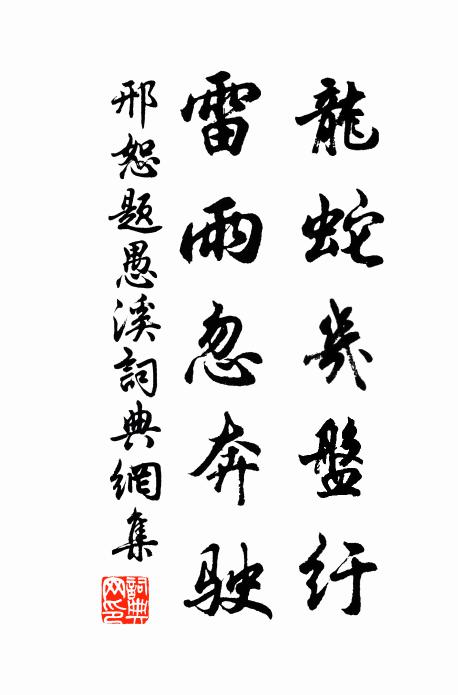 龍蛇幾盤紆
雷雨忽奔駛
邢恕題愚溪詞典網集
詞典网印